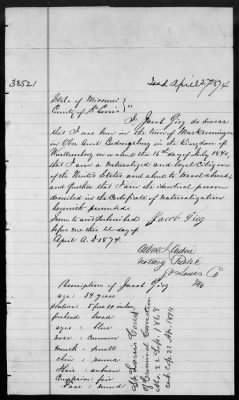 38521
Issd April 27 1874
State of Missouri }
County of St Louis }
I Jacob Gioz do swear
that I was born in the town of Markgroningen
in Ober Amt Ludwigsburg in the Kingdom of
Wurttemberg on or about the 16th day of July 1840,
that I am a Naturalized and loyal Citizen
of the United States and about to travel abroad,
and further that I am the identical person
described in the Certificate of Naturalization
herewith presented.
Sworn to and Subscribed
before me this 22 day of
April A.D. 1874.
Jacob Gioz
Notary Public
St Louis Co
Mo
Description of Jacob Gioz
age: 34 years
stature: 5 feet 10 inches
forehead: broad
eyes: blue
nose: common
mouth: small
chin: round
Hair: auburn
Complexion: fair
Face: round
St Louis Court
of Criminal Correction